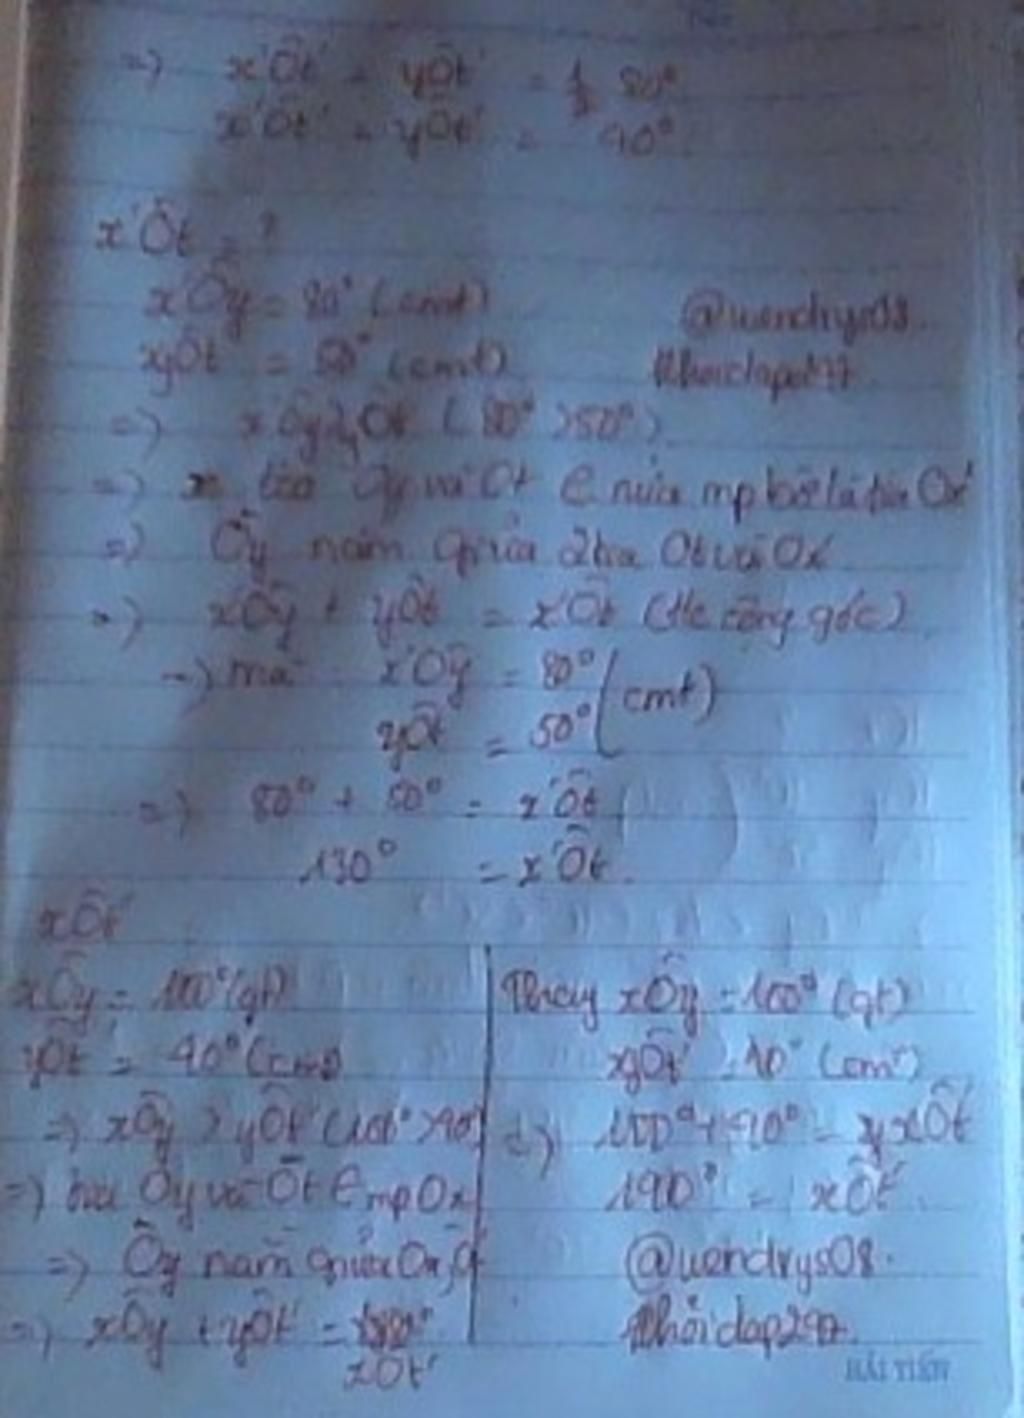 =) x'Ôt' = yÔt' = 1/2 80°
x'Ôt' = yÔt' = 90°
x'Ôt = ?
x'Ôy = 80° (cmt)
@wendrys08.
yÔt = 50° (cmt)
=) x'Ôy > yÔt (80° > 50°)
=) tia Oy và Ot € nửa mp bờ là tia Ox'
=) Ôy nằm giữa 2 tia Ot và Ox'
=) x'Ôy + yÔt = x'Ôt (t/c cộng góc)
=) mà x'Ôy = 80° (cmt)
yÔt = 50°
=) 80° + 50° = x'Ôt
130° = x'Ôt.
xÔt'
xÔy = 100° (gt)
yÔt' = 90° (cmt)
=) xÔy > yÔt' (100° > 90°)
=) tia Ôy và Ôt € mp Ox
=) Ôy nằm giữa Ox, Ot'
=) xÔy + yÔt' =
xÔt'
Thay xÔy = 100° (gt)
yÔt' = 90° (cmt)
=) 100° + 90° = xÔt'
190° = xÔt'
@wendrys08.
#hỏidap247.
HẢI TIẾN